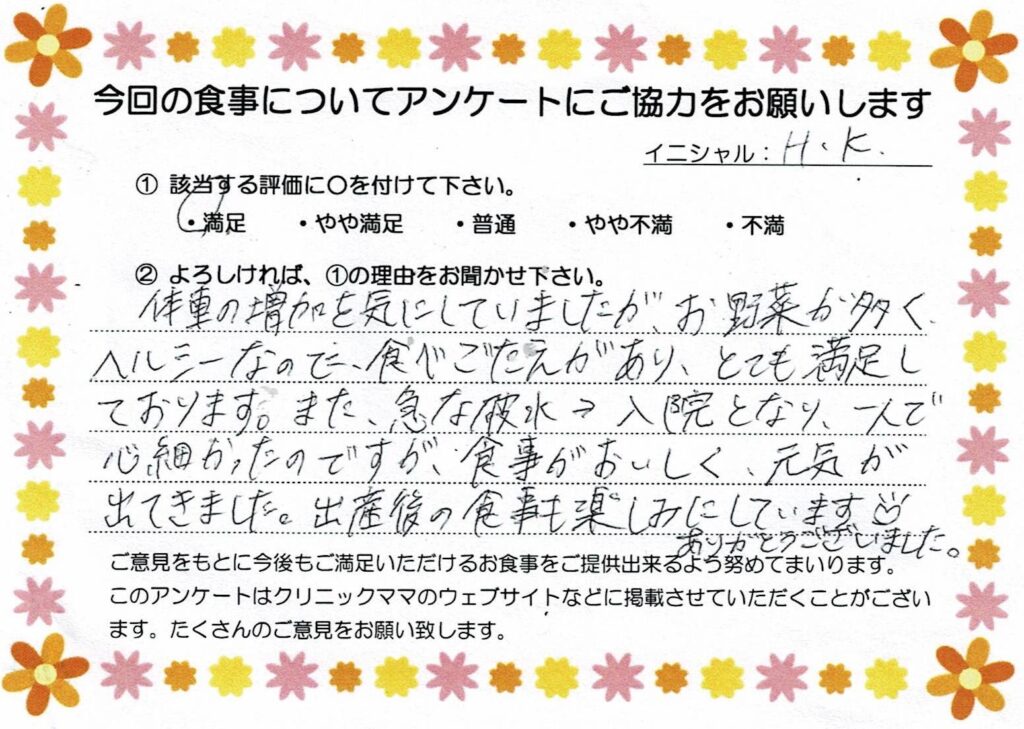 今回の食事についてアンケートにご協力をお願いします
イニシャル：H.K.
① 該当する評価に○を付けて下さい。
・満足 ・やや満足 ・普通 ・やや不満 ・不満
② よろしければ、①の理由をお聞かせ下さい。
体重の増加を気にしていましたが、お野菜が多く、
ヘルシーなので、食べごたえがあり、とても満足し
ております。また、急な破水→入院となり、一人で
心細かったのですが、食事がおいしく、元気が
出てきました。出産後の食事も楽しみにしています
ありがとうございました。
ご意見をもとに今後もご満足いただけるお食事をご提供出来るよう努めてまいります。
このアンケートはクリニックママのウェブサイトなどに掲載させていただくことがござい
ます。たくさんのご意見をお願い致します。